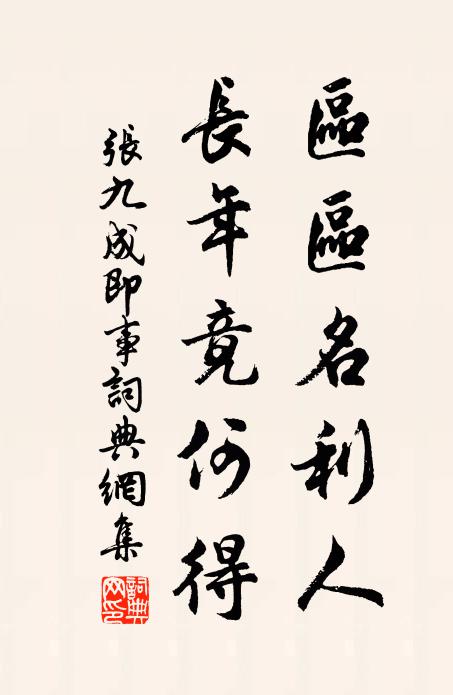 區區名利人
長年竟何得
張九成即事詞典網集
詞典网印